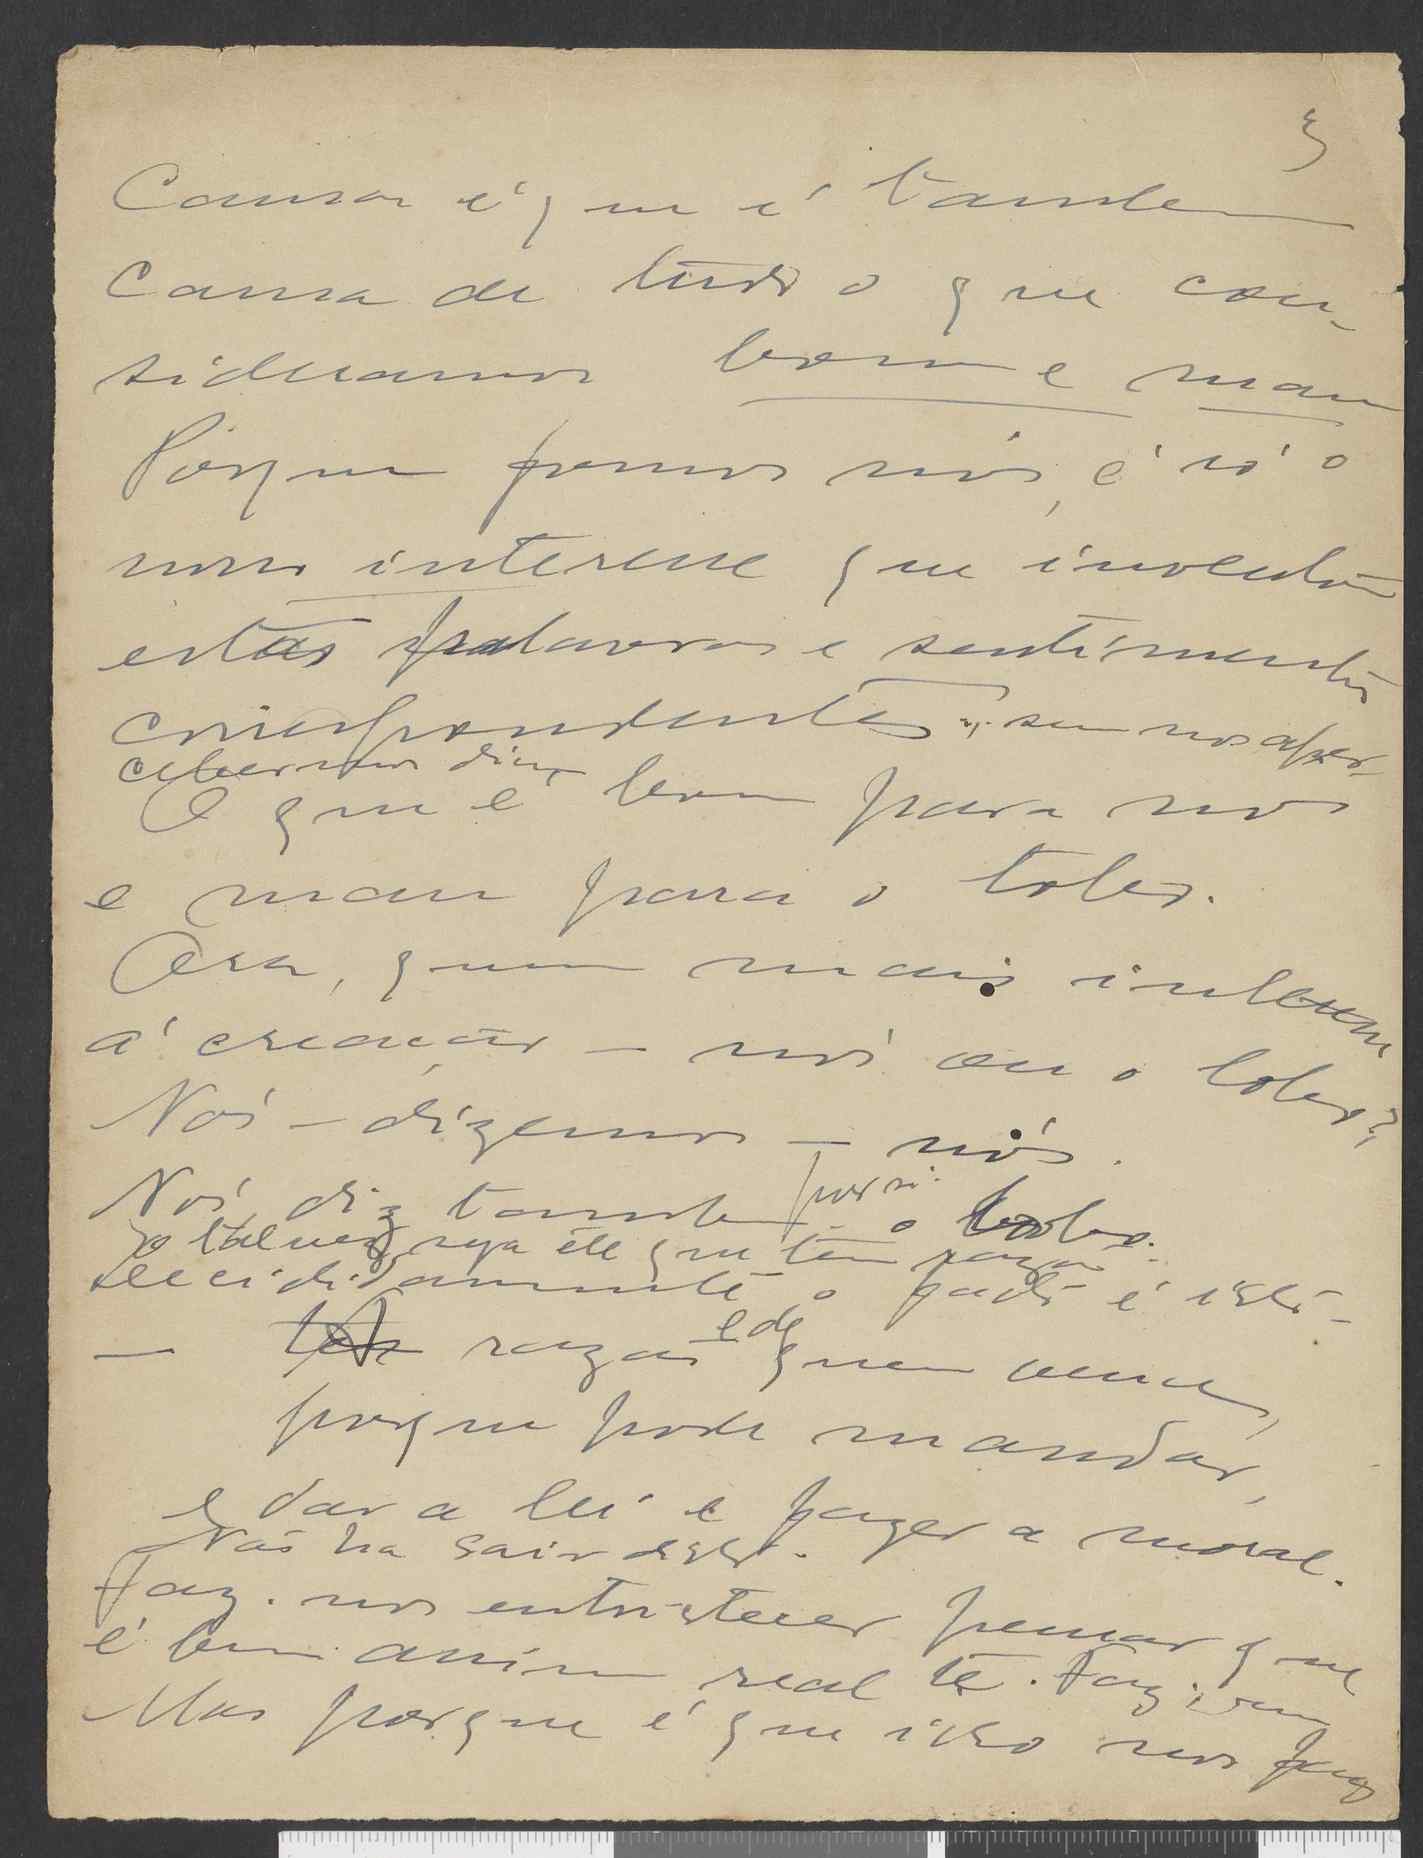 3
Causa é que é tambem
causa de tudo o que con-
sideramos bom e mau
Porque fomos nós, é só o
nosso interesse que inventou
estas palavras e sentimentos
correspondentes, sem nos aper-
cebermos disso
O que é bom para nos
e mau para o lobo.
Ora, quem mais interessa
á creação — nós ou o lobo?
Nós — dizemos — nós.
Nós diz tambem por si o lobo.
E talvez seja ele que tem razão
decididamente o facto é isto —
— razão é de quem vence,
porque pode mandar,
e dar a lei e fazer a moral.
Não ha sair disto.
Faz-nos entristecer pensar que
é bem assim realte. Faz, sim
Mas porque é que isso nos faz